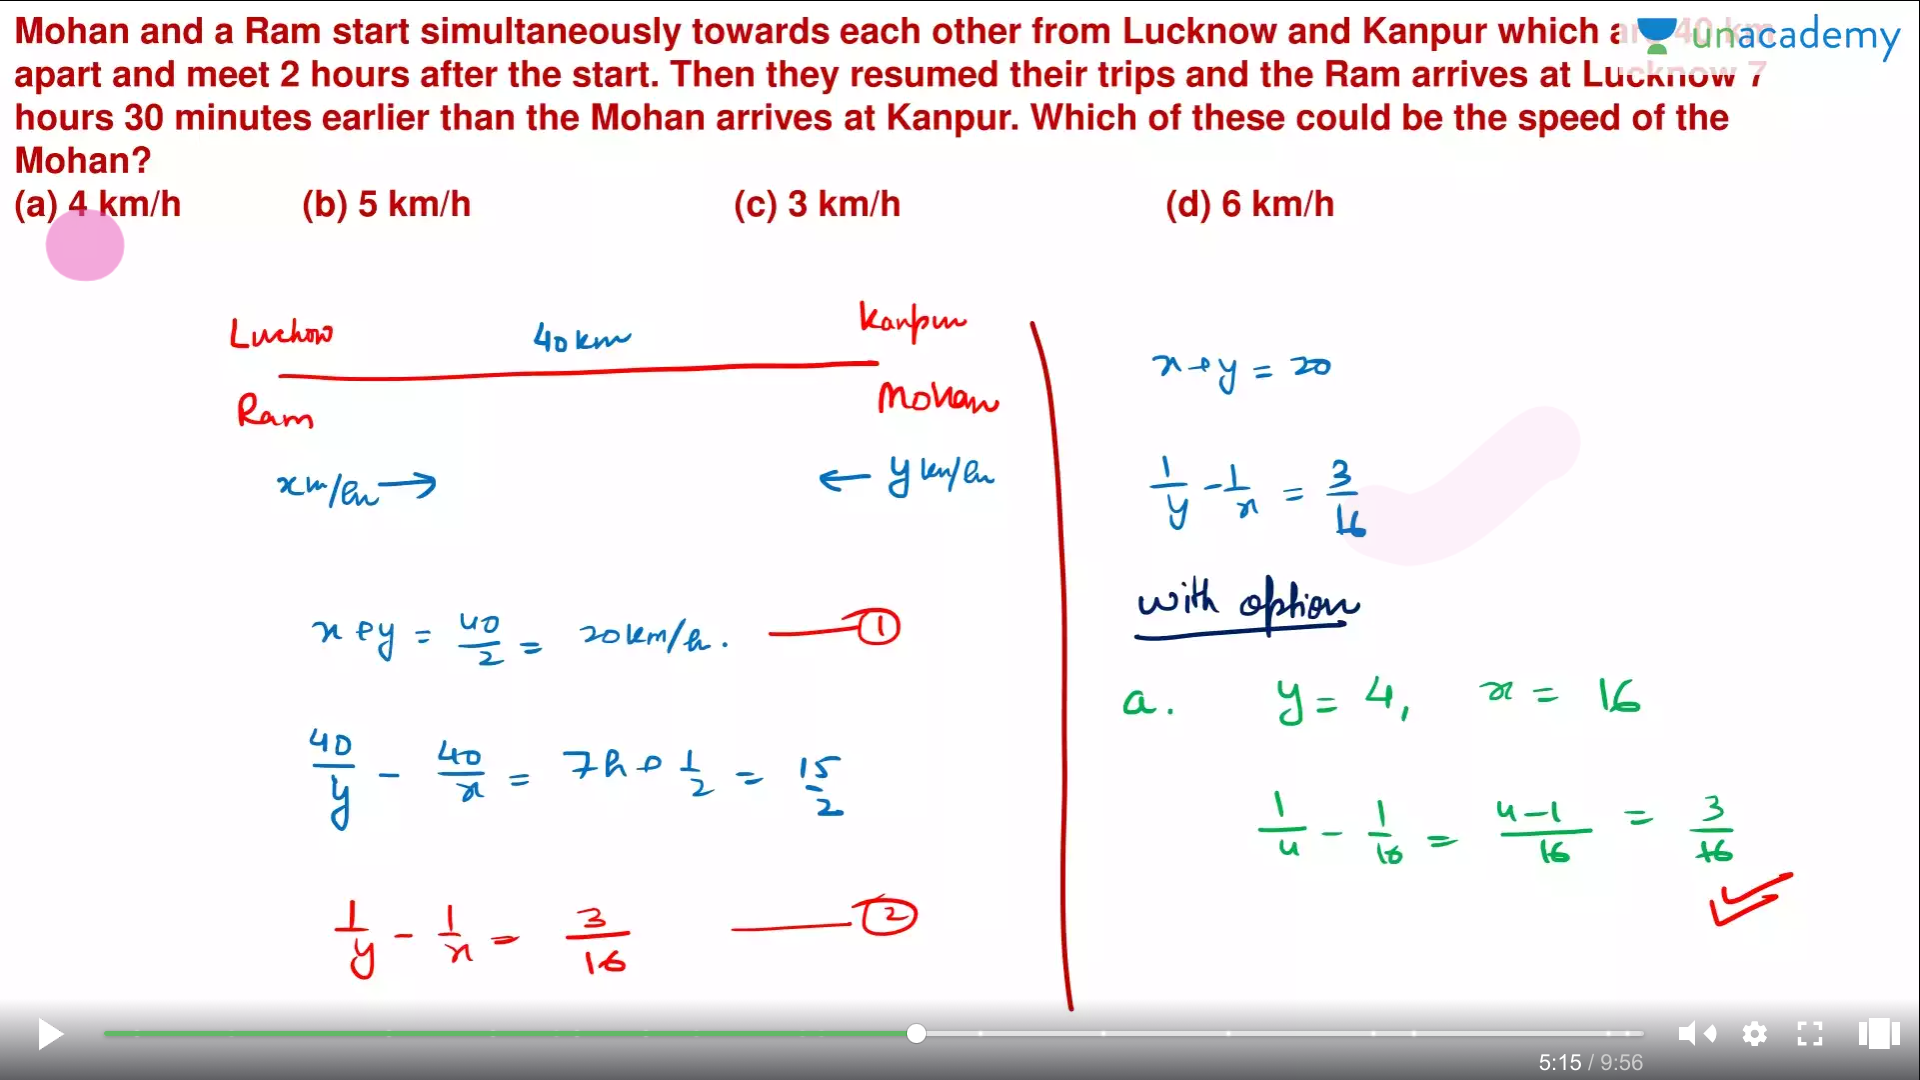 Mohan and a Ram start simultaneously towards each other from Lucknow and Kanpur which are 40 km
unacademy
apart and meet 2 hours after the start. Then they resumed their trips and the Ram arrives at Lucknow 7
hours 30 minutes earlier than the Mohan arrives at Kanpur. Which of these could be the speed of the
Mohan?
(a) 4 km/h (b) 5 km/h (c) 3 km/h (d) 6 km/h
40km
Kanpur
Ram
Mohan
y km/hr
x+y = 40/2 = 20km/h. ① 
40/y - 40/x = 7h + 1/2 = 15/2
1/y - 1/x = 3/16 ②
x+y = 20
1/y - 1/x = 3/16
with option
a. y = 4, x = 16
1/4 - 1/16 = 4-1/16 = 3/16
5:15 / 9:56